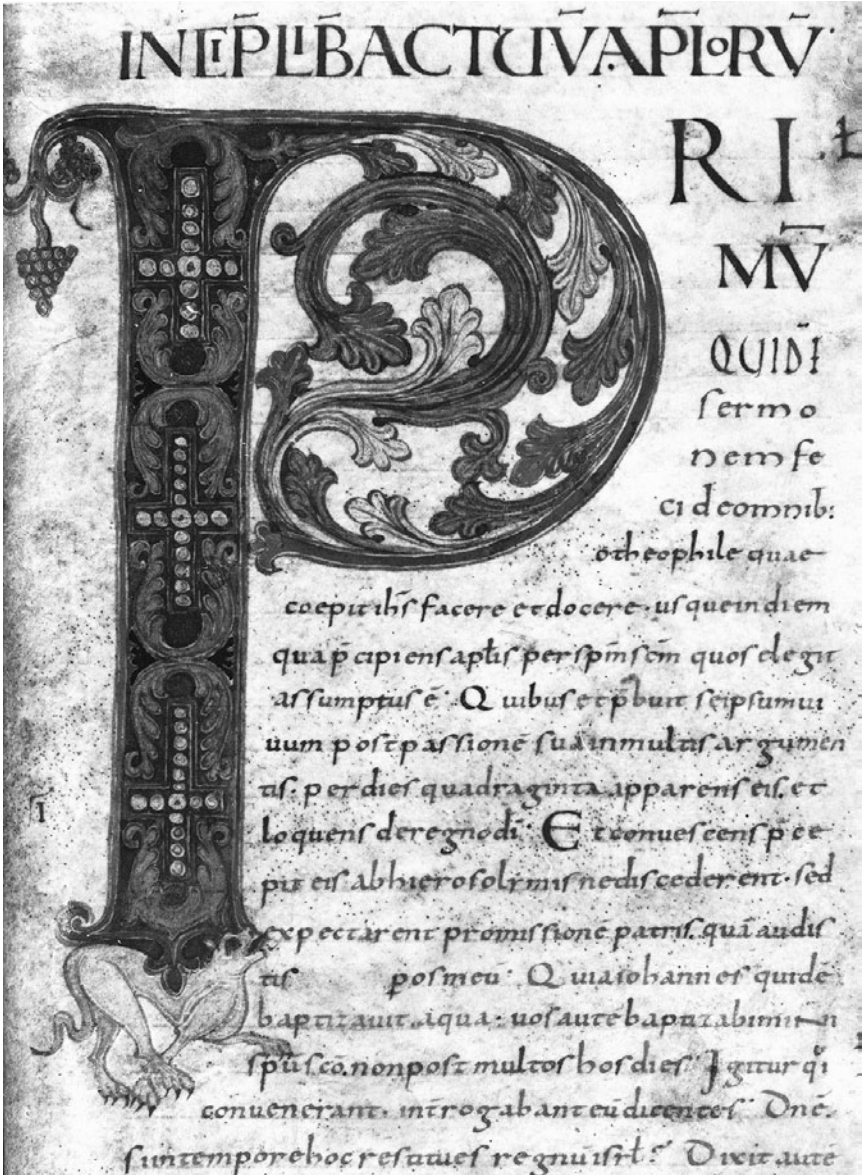 IN EIP̄ LIB̄ ACTUV̄ AP̄LORV̄
P RI
MV̄
QUIDĒ
sermo
nem fe
ci deomnib:
otheophile quae
coepit ih̄s facere etdocere · usqueindiem
qua p̄cipiens aptīs per sp̄m sc̄m quos elegit
assumptus ē · Quibus et p̄buit seipsum ui
uum post passionē suā inmultis argumen
tis · per dies quadraginta apparens eis · et
loquens deregno dī · Et conuescens p̄ce
pit eis abhierosolymis nediscederent · sed
expectarent promissionē patris · quā audis
tis pos meū · Quia iohannes quidē
baptizauit aqua · uos autē baptizabimini
sp̄u sc̄o · nonpost multos hos dies · Igitur qi
convenerant · intrrogabant eū dicentes · Dn̄e ·
si intemporehoc restitues regnū isrl̄ ? Dixit autē
Ī